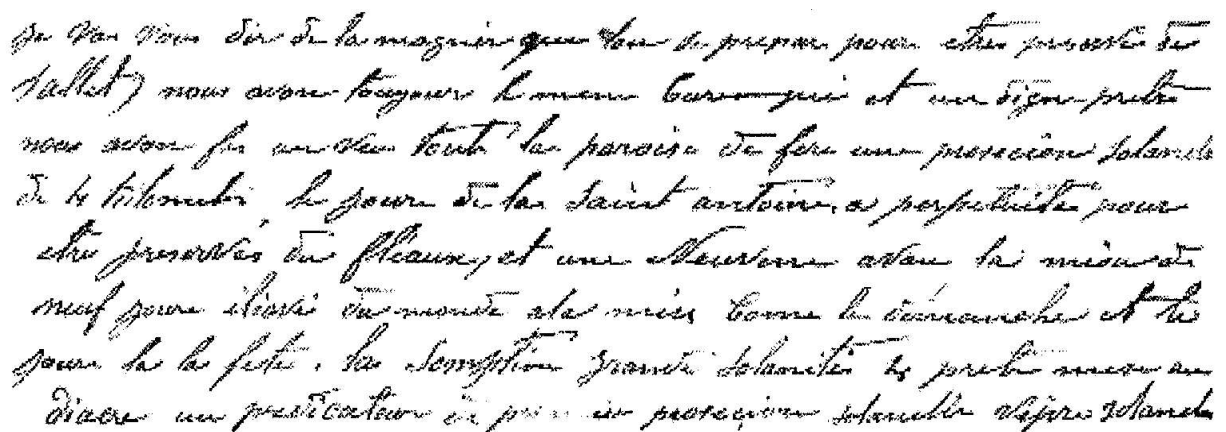 je vas vous dir de la magnier que lon se prepar pour etre preservé de
nous avon toujour le meme Curé qui et un dign pretre
nous avon fai un veu toute la paroise de fere une prosecion solanele
de 4 kilometre le jour de la saint antoine a perpetuite pour
etre preservés du fleaux, et une Neuvene avan la misou de
neuf jour il iavé du monde ala mess come le dimanche et le
jour de la fete, la somption grande solanité 4 pretre messe en
diacre un predicateur de premier prosecion solanelle vepre solanele